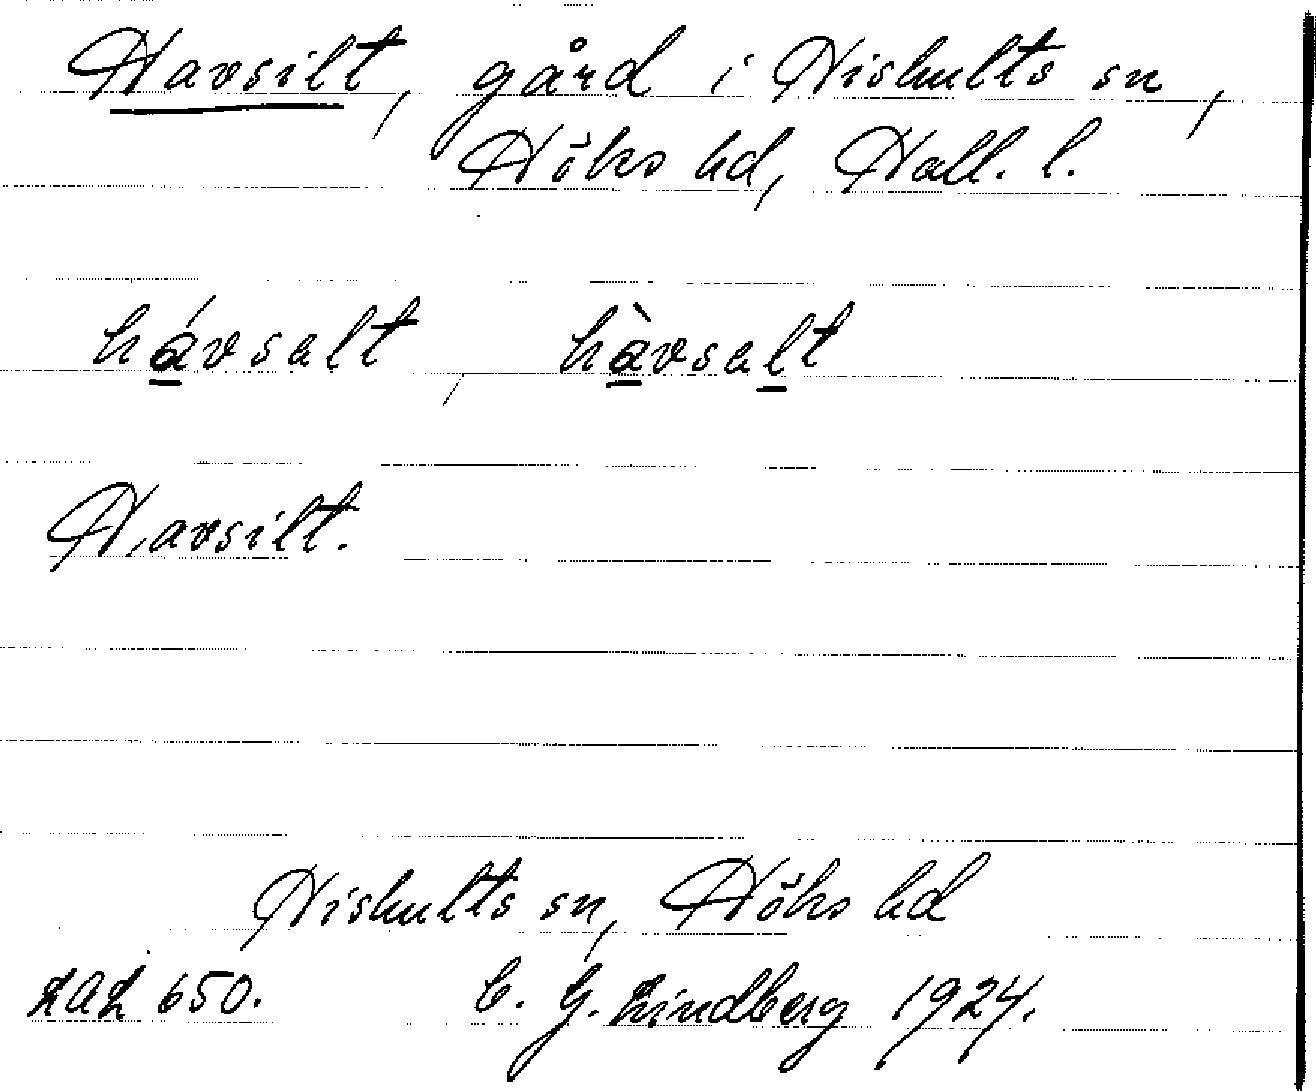 Havsilt, gård i Hishults sn,
Höks hd, Hall. l.
hávsalt, hàvsalt
Havsilt.
Hishults sn, Höks hd
LAL 650. C. G. Lindberg 1924.